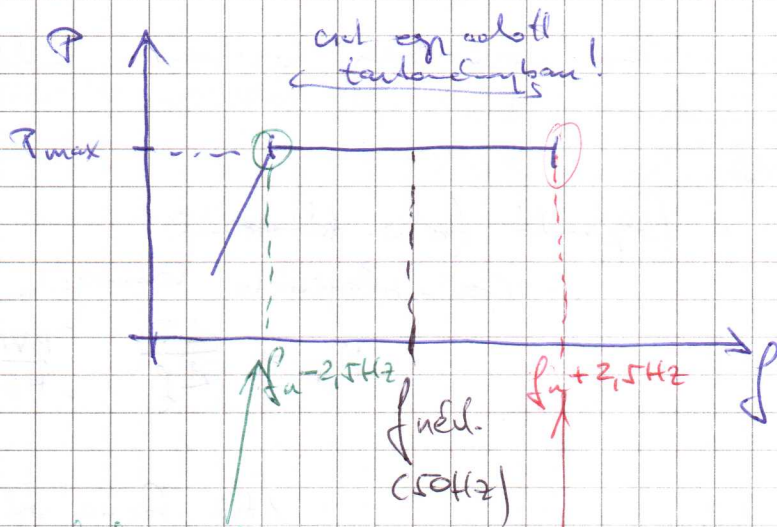 P
csak egy adott
tartományban!
Pmax
fn-2,5Hz
fn+2,5Hz
f
fnévl.
(50Hz)